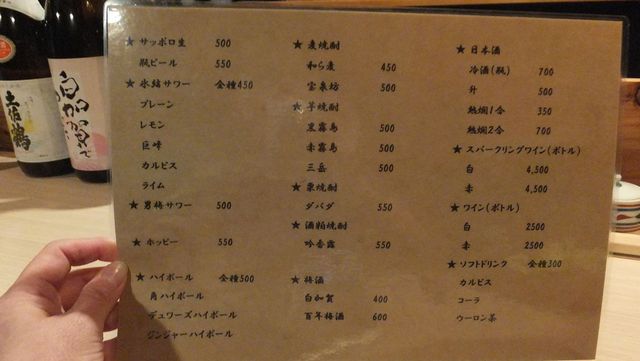 ★ サッポロ生 500
瓶ビール 550
★ 氷結サワー 全種450
プレーン
レモン
巨峰
カルピス
ライム
★ 男梅サワー 500
★ ホッピー 550
★ ハイボール 全種500
角ハイボール
デュワーズハイボール
ジンジャーハイボール
★ 麦焼酎
和ら麦 450
宝泉坊 500
★ 芋焼酎
黒霧島 500
赤霧島 500
三岳 500
★ 栗焼酎
ダバダ 550
★ 酒粕焼酎
吟香露 550
★ 梅酒
白加賀 400
百年梅酒 600
★ 日本酒
冷酒(瓶) 700
升 500
熱燗1合 350
熱燗2合 700
★ スパークリングワイン(ボトル)
白 4,500
赤 4,500
★ ワイン(ボトル)
白 2500
赤 2500
★ ソフトドリンク 全種300
カルピス
コーラ
ウーロン茶
土佐鶴